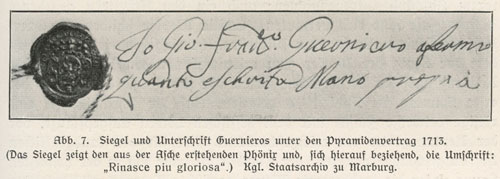 Io Gio. Franco. Guerniero afermo
quanto e schrito Mano propia
Abb. 7. Siegel und Unterschrift Guernieros unter den Pyramidenvertrag 1713.
(Das Siegel zeigt den aus der Asche erstehenden Phönix und, sich hierauf beziehend, die Umschrift:
„Rinasce piu gloriosa“.) Kgl. Staatsarchiv zu Marburg.